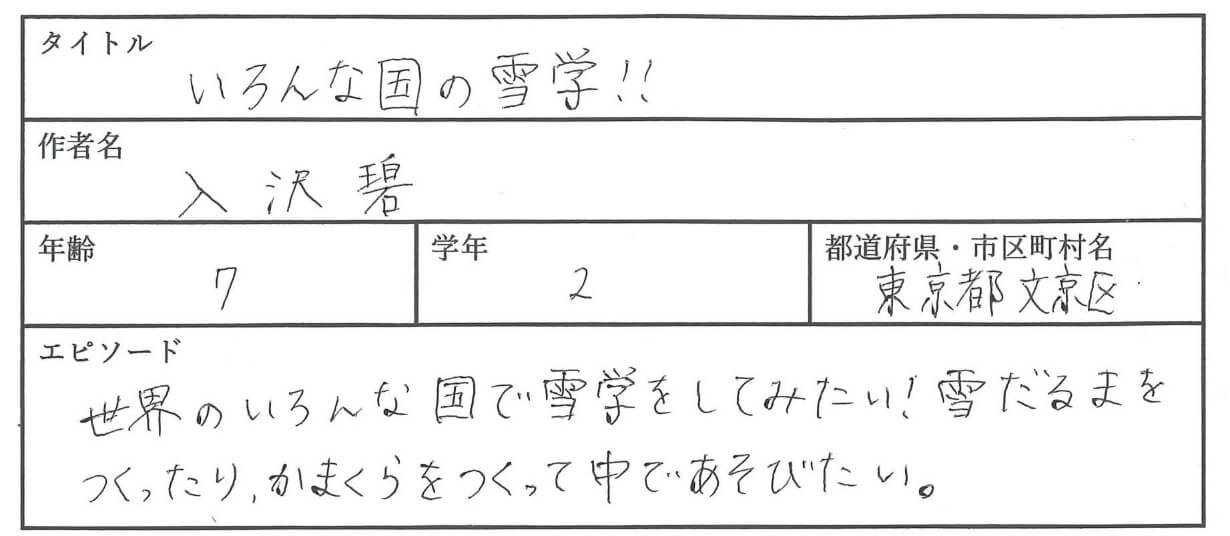 タイトル
いろんな国の雪学!!
作者名
入沢碧
年齢
7
学年
2
都道府県・市区町村名
東京都文京区
エピソード
世界のいろんな国で雪学をしてみたい!雪だるまを
つくったり,かまくらをつくって中であそびたい。